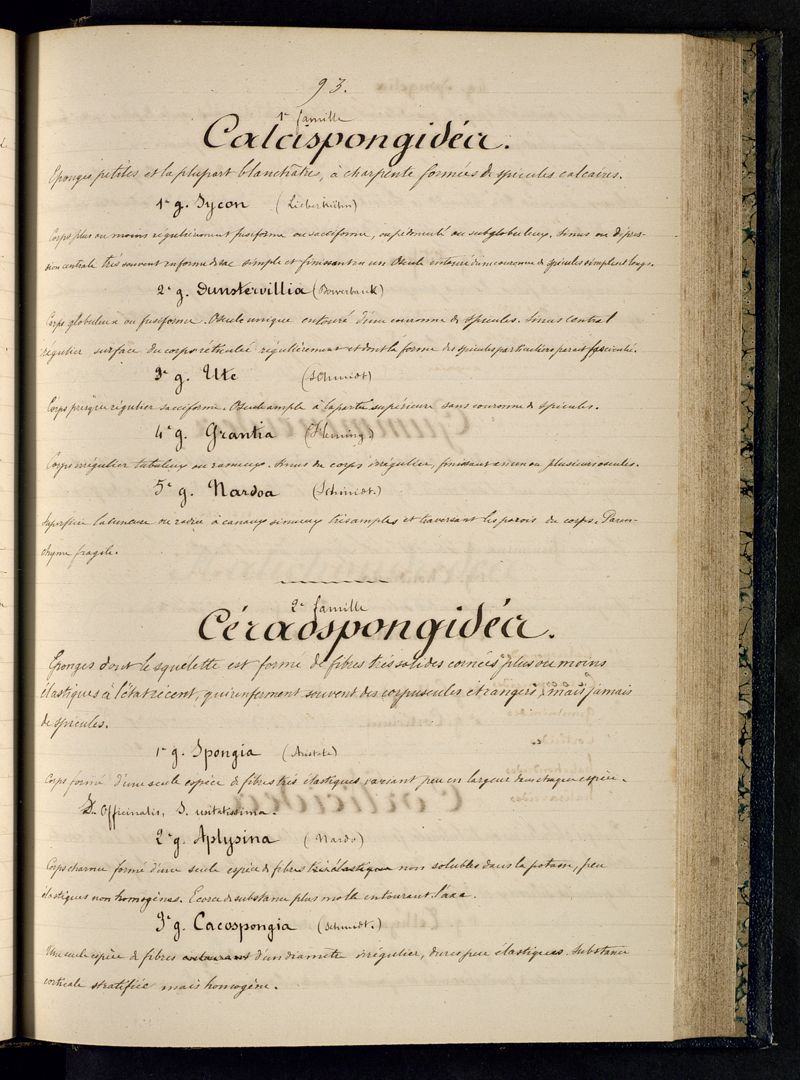 93.
1e famille
Calcispongidéa.
Eponges petites et la plupart blanchâtres, à charpente formées de spicules calcaires.
1e g. Sycon (Lieberkühn)
Corps plus ou moins régulièrement fusiforme ou sacciforme, ou pédonculé ou subglobuleux. Sinus ou dépres-
sion centrale très souvent en forme de sac simple et finissant en un oscule entouré d'une couronne de spicules simples et longs.
2e g. Dunstervillia (Bowerbank)
Corps globuleux ou fusiforme. Oscule unique entouré d'une couronne de spicules. Sinus central
régulier, surface du corps réticulée régulièrement et dont la forme des spicules particuliers parait fasciculée.
3e g. Ute (Schmidt)
Corps presque régulier sacciforme. Oscule ample à la partie supérieure sans couronne de spicules.
4e g. Grantia (Fleming)
Corps irrégulier tubuleux ou rameux. Sinus du corps irrégulier, finissant en un ou plusieurs oscules.
5e g. Nardoa (Schmidt.)
Superficie lacuneuse ou à canaux sinueux très amples et traversant les parois du corps. Paren-
chyme fragile.
2e famille
Céraospongidéa.
Eponges dont le squélette est formé de fibres très solides cornées plus ou moins
élastiques à l'état récent, qui renferment souvent des corpuscules étrangers, mais jamais
de spicules.
1e g. Spongia (Aristote)
Corps formé d'une seule espèce de fibres très élastiques, variant peu en largeur dans chaque espèce.
S. Officinalis, S. usitatissima.
2e g. Aplysina (Nardo)
Corps charnu formé d'une seule espèce de fibres très élastiques non solubles dans la potasse, peu
élastiques non homogènes. Ecorce de substance plus molle entourant l'axe.
3e g. Cacospongia (Schmidt.)
Une seule espèce de fibres entourant d'un diamètre irrégulier, dures peu élastiques. Substance
corticale stratifiée mais homogène.